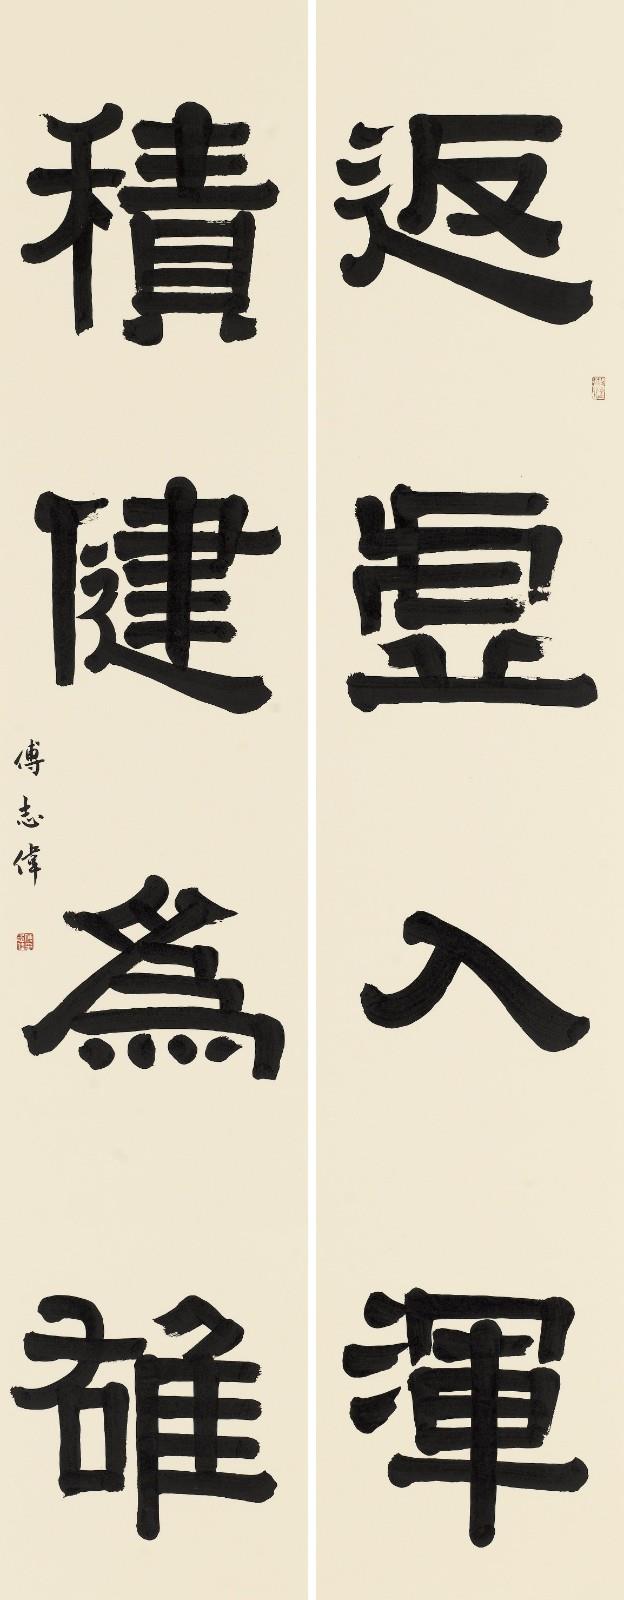 返虛入渾
積健為雄
傅志偉